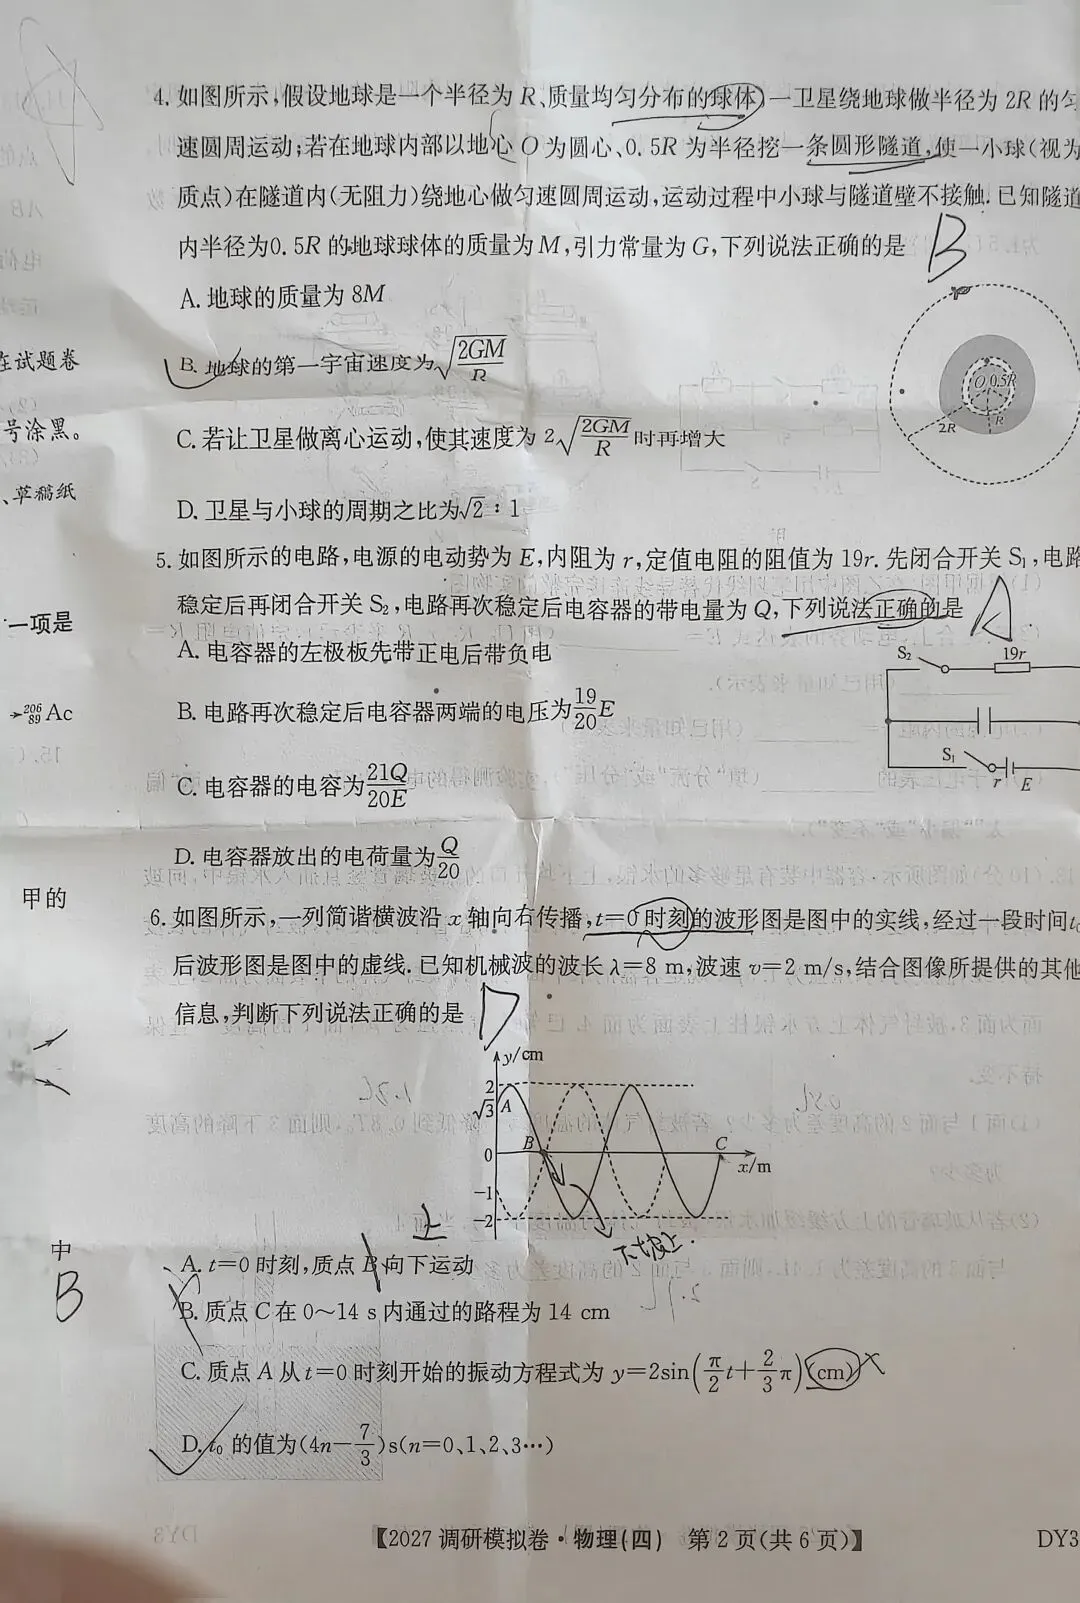 4. 如图所示,假设地球是一个半径为 R、质量均匀分布的球体,一卫星绕地球做半径为 2R 的匀
速圆周运动;若在地球内部以地心 O 为圆心、0.5R 为半径挖一条圆形隧道,使一小球(视为
质点)在隧道内(无阻力)绕地心做匀速圆周运动,运动过程中小球与隧道壁不接触.已知隧道
内半径为0.5R 的地球球体的质量为 M,引力常量为 G,下列说法正确的是 B
A. 地球的质量为 8M
B. 地球的第一宇宙速度为√(2GM/R)
C. 若让卫星做离心运动,使其速度为 2√(2GM/R)时再增大
D. 卫星与小球的周期之比为√2∶1
O 0.5R
2R R
在试题卷
号涂黑。
、草稿纸
一项是
→²⁰⁶₈₉Ac
甲的
中
B
5. 如图所示的电路,电源的电动势为 E,内阻为 r,定值电阻的阻值为 19r. 先闭合开关 S₁,电路
稳定后再闭合开关 S₂,电路再次稳定后电容器的带电量为 Q,下列说法正确的是 A
A. 电容器的左极板先带正电后带负电
B. 电路再次稳定后电容器两端的电压为19/20 E
C. 电容器的电容为21Q/20E
D. 电容器放出的电荷量为Q/20
S₂ 19r
S₁
r E
6. 如图所示,一列简谐横波沿 x 轴向右传播,t=0 时刻的波形图是图中的实线,经过一段时间t₀
后波形图是图中的虚线. 已知机械波的波长 λ=8 m,波速 v=2 m/s,结合图像所提供的其他
信息,判断下列说法正确的是 D
y/cm
2
√3 A
B C
0 x/m
-1
-2
上
下坡上.
A. t=0 时刻,质点 B 向下运动
B. 质点 C 在 0～14 s 内通过的路程为 14 cm
C. 质点 A 从 t=0 时刻开始的振动方程式为 y=2sin(π/2 t+2/3 π)(cm)
D. t₀ 的值为(4n-7/3)s(n=0、1、2、3…)
【2027 调研模拟卷·物理(四) 第 2 页(共 6 页)】
DY3